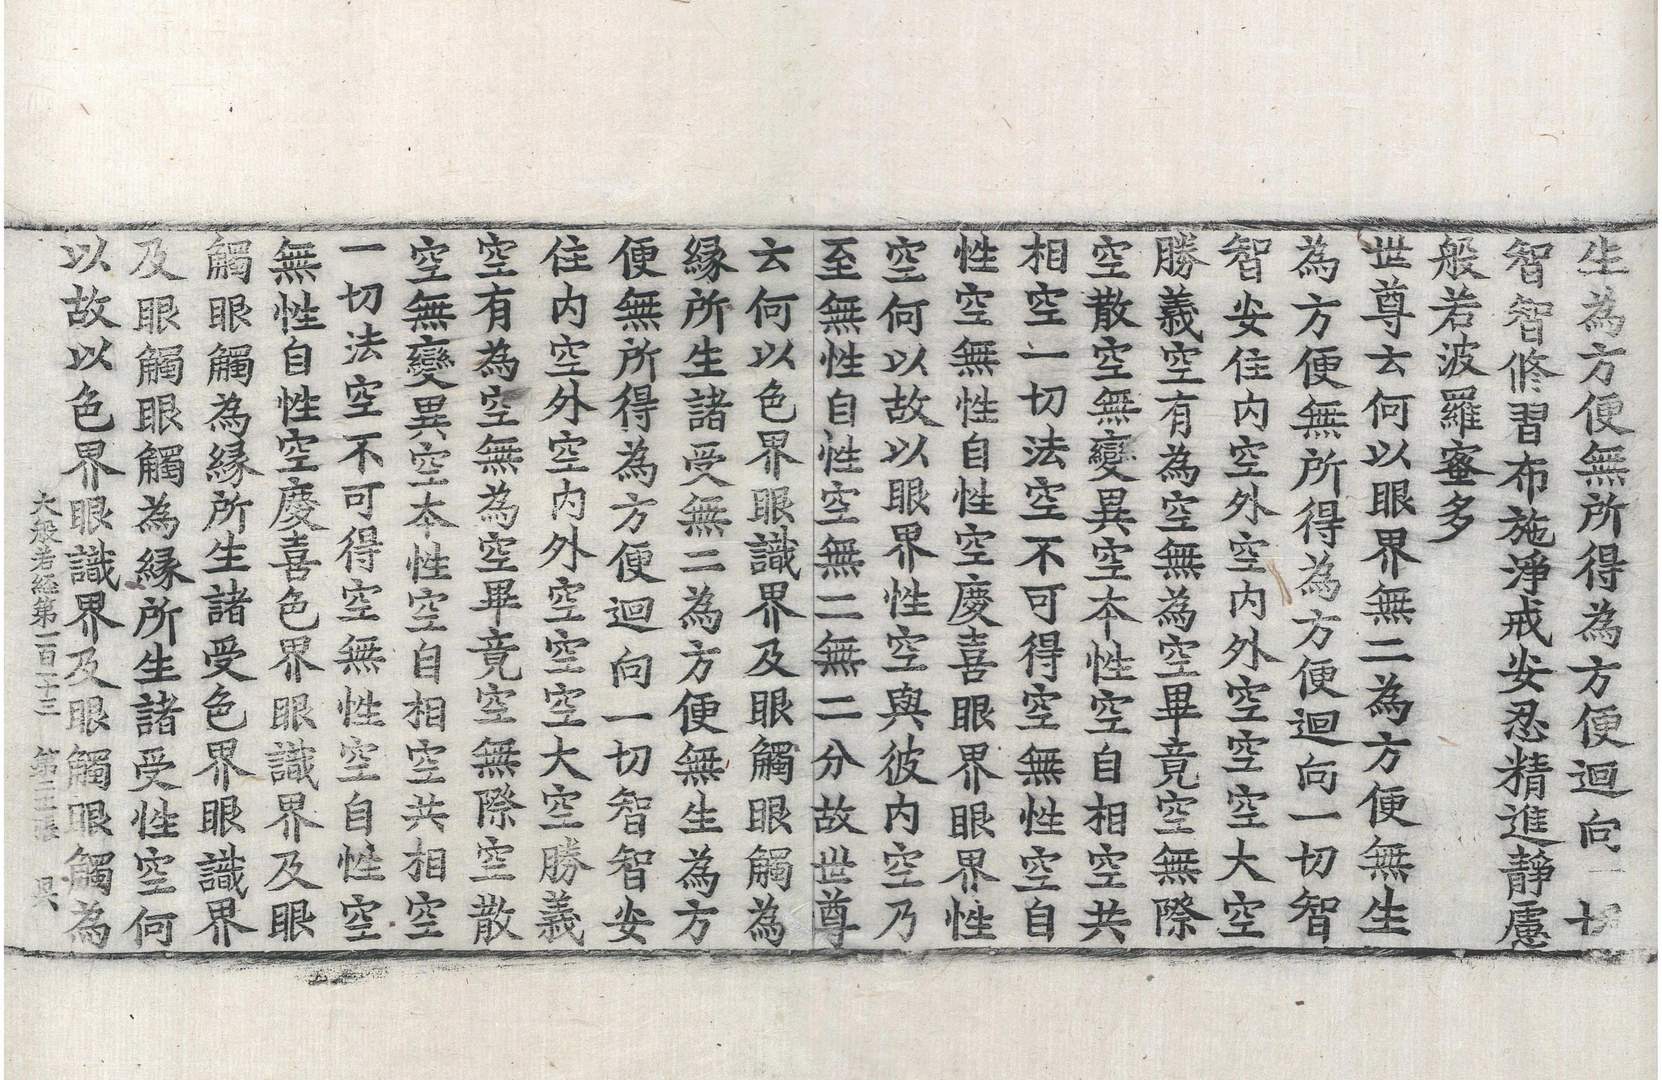 生為方便無所得為方便迴向一切
智智修習布施淨戒安忍精進靜慮
般若波羅蜜多
世尊云何以眼界無二為方便無生
為方便無所得為方便迴向一切智
智安住內空外空內外空空空大空
勝義空有為空無為空畢竟空無際
空散空無變異空本性空自相空共
相空一切法空不可得空無性空自
性空無性自性空慶喜眼界眼界性
空何以故以眼界性空與彼內空乃
至無性自性空無二無二分故世尊
云何以色界眼識界及眼觸眼觸為
緣所生諸受無二為方便無生為方
便無所得為方便迴向一切智智安
住內空外空內外空空空大空勝義
空有為空無為空畢竟空無際空散
空無變異空本性空自相空共相空
一切法空不可得空無性空自性空
無性自性空慶喜色界眼識界及眼
觸眼觸為緣所生諸受色界眼識界
及眼觸眼觸為緣所生諸受性空何
以故以色界眼識界及眼觸眼觸為
大般若經第一百二十三 第三張 吳